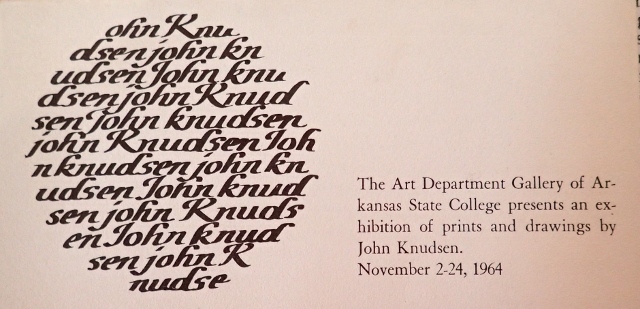 ohn Knu
dsen john kn
udsen John knu
dsen john Knud
sen John knudsen
john Knudsen Joh
n knudsen john kn
udsen John knud
sen john Knuds
en John knud
sen john K
nudse
The Art Department Gallery of Ar-
kansas State College presents an ex-
hibition of prints and drawings by
John Knudsen.
November 2-24, 1964